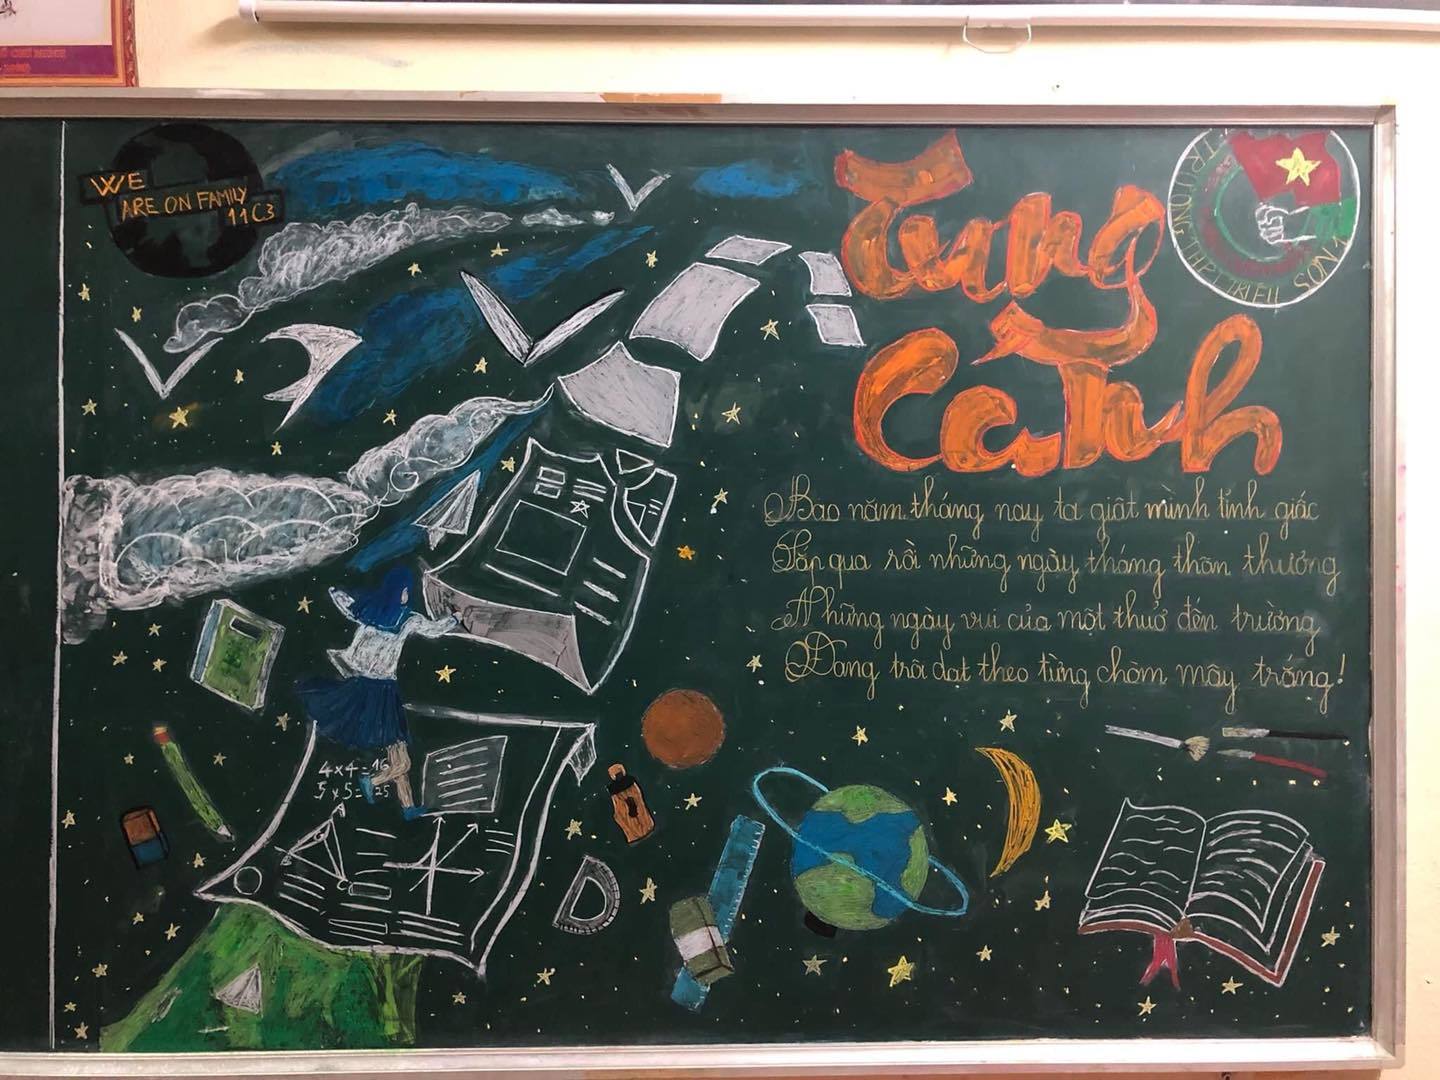 WE
ARE ON FAMILY
11C3
Tung
Cánh
TRƯỜNG THPT TRIỆU SƠN 1
Bao năm tháng nay ta giật mình tỉnh giấc
Sắp qua rồi những ngày tháng thân thương
Những ngày vui của một thuở đến trường
Đang trôi dạt theo từng chòm mây trắng!
4×4=16
5×5=25